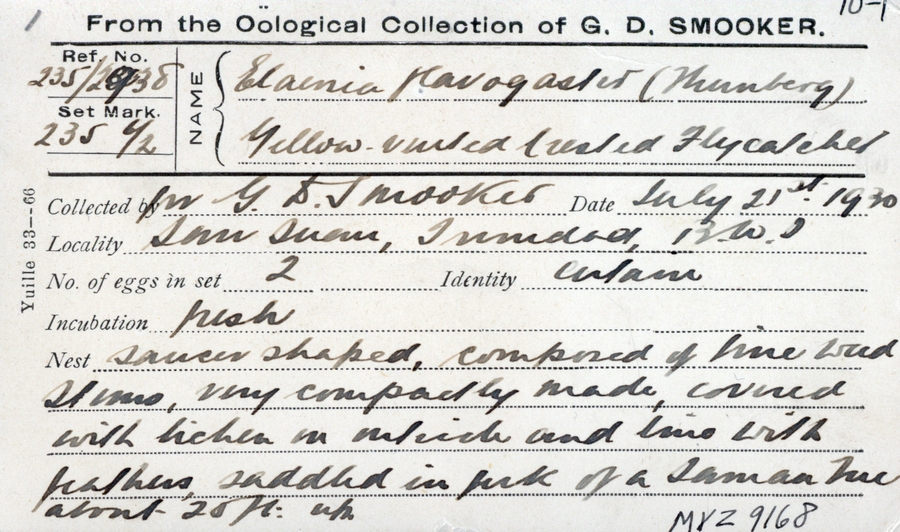 10-1
From the Oölogical Collection of G. D. SMOOKER.
Ref. No.
235/2938
Set Mark.
235 4/2
NAME
Elaenia flavogaster (Thunberg)
Yellow-vented Crested Flycatcher
Collected by for G. D. Smooker Date July 21st. 1930
Locality San Juan, Trinidad, B.W.I
No. of eggs in set 2 Identity certain
Incubation fresh
Nest saucer shaped, composed of fine weed
stems, very compactly made, covered
with lichen on outside and lined with
feathers, saddled in fork of a Saman tree
about 20 ft. up
Yuille 33--66
MVZ 9168